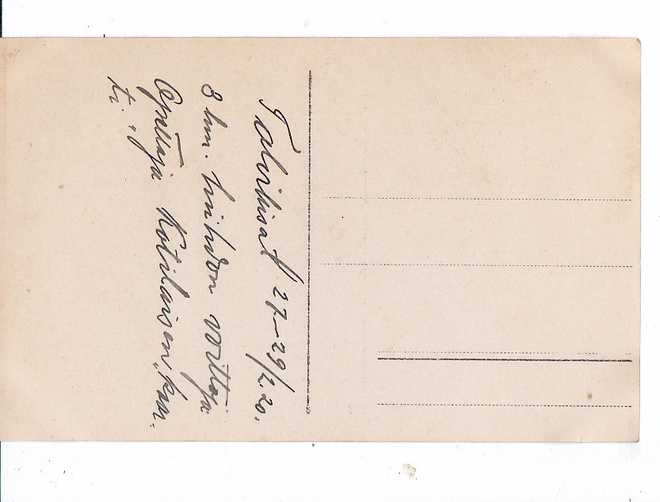 Talvikisat 27–29/2.20.
km. hiihdon voittaja
Opettaja Kotilaisen „kaar-
ti"